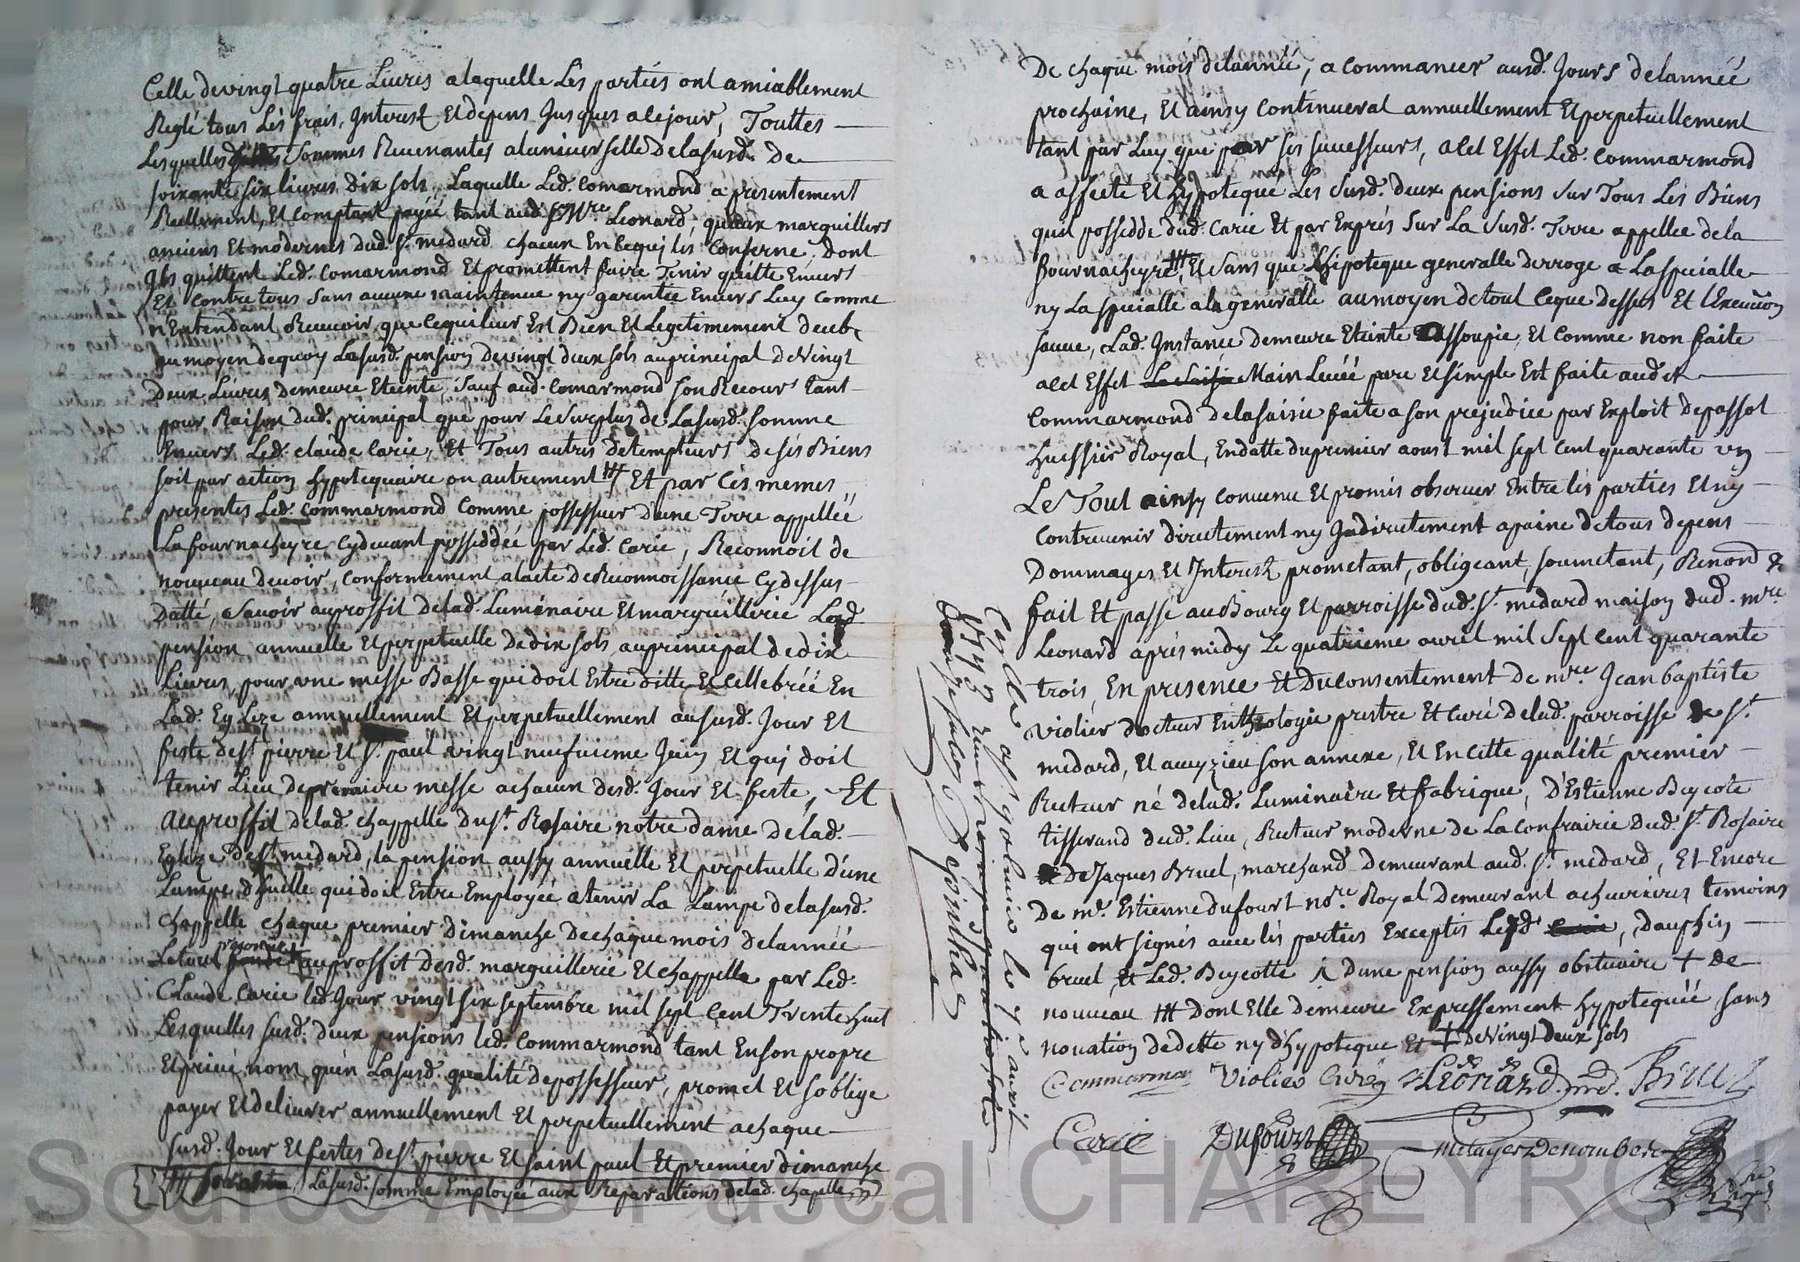 Celle de vingt quatre Livres a laquelle Les parties ont amiablement
Reglé tous Les frais, Interest Et depens Jusques a ce jour, Touttes
Lesquelles Sommes Revenantes a lunicerselle de la susd. de
soixante six livres dix sols, Laquelle Led. Comarmond a presentement
Reellement, Et Comptant payée tant aud. Mre. Leonard, qu'aux marguilliers
anciens Et modernes dud. st. medard chacun En ce qui les Conserne, Dont
Ils quittent Led. Comarmond Et promettent faire Tenir quitte Envers
Et Contre tous Sans aucune maintenue ny garentie Envers Luy Comme
n'Entendant Recevoir que ce qui leur Est Bien Et Legetimement deub,
au moyen de quoy La susd. pension de vingt deux sols au principal de Vingt
Deux Livres demeure Eteinte, Sauf aud. Comarmond son Recours tant
pour Raison dud. principal que pour Le Surplus de La susd. somme
Envers Led. claude Carie, Et Tous autres detempteurs de ses Biens
soit par action hypotequaire ou autrement ⧻ Et par Ces memes
presentes Led. Commarmond Comme possesseur d'une Terre appellée
La fournacheyre Cydevant posseddée par Led. Carie, Reconnoit de
nouveau devoir, Conformement a lacte de Reconnoissance Cydessus
Datté, a savoir au proffit de lad. Luminaire Et marguillerie Lad.
pension annuelle Et perpetuelle de dix sols au principal de dix
Livres, pour une messe Basse qui doit Estre ditte Et Cellebrée En
Lad. Eglize annuellement Et perpetuellement au susd. Jour Et
feste de st. pierre Et st. paul vingt neufuieme Juin Et qui doit
tenir Lieu de premiere messe a chacun desd. Jour Et feste, Et
au proffit de lad. chappelle du st. Rosaire notre dame de lad.
Eglize de st. medard, la pension aussy annuelle Et perpetuelle d'une
Lampe d'huille qui doit Entre Employée a tenir La Lampe de la susd.
Chappelle chaque premier dimanche de chaque mois de lannée
Le tout au proffit desd. marguillerie Et Chappelle par Led.
Claude Carie led. Jour vingt six septembre mil sept Cent Trente huit
Lesquelles susd. deux pensions led. Commarmond tant En son propre
Et privé nom, qu'en La susd. qualité de possesseur, promet Et soblige
payer Et delivrer annuellement Et perpetuellement a chaque
susd. Jour Et festes de st. pierre Et saint paul Et premier dimanche
⧻ La susd. somme Employée aux Reparations de lad. chapelle
De chaque mois de lannée, a commancer ausd. Jours de lannée
prochaine, Et ainsy Continuerat annuellement Et perpetuellement
tant par Luy que par ses successeurs, a Cet Effet Led. Commarmond
a affecte Et hypotequé Les susd. Deux pensions Sur Tous Les Biens
quil possedde dud. Carie Et par Exprés Sur La Susd. Terre appellee dela
fournacheyre ⧻ Et Sans que Lhipoteque generalle derroge a La specialle
ny La specialle a la generalle au moyen de tout Ce que dessus Et lExecution
sauve, Lad. Instance demeure Eteinte assoupie, Et Comme non faite
a Cet Effet Main Levée pure Et simple Est faite aud.
Commarmond de la saisie faite a son prejudice par Exploit de passot
huissier Royal, En datte du premier aoust mil sept Cent quarante un
Le Tout ainsy convenu Et promis observer Entre les parties Et ny
Contrevenir directement ny Indirectement a paine de tous depens
Dommages Et Interest prometant, obligeant, soumetant, Renond. &
fait Et passé au Bourg Et parroisse dud. st. medard maison dud. mre.
Leonard aprés midy Le quatrieme avril mil sept Cent quarante
trois, En presence Et du Consentement de mre. Jean baptiste
violier docteur En theologie prestre Et Curé de lad. parroisse de st.
medard, Et aveyzieu son annexe, Et En Cette qualité premier
Recteur né de lad. Luminaire Et fabrique, D'Estienne Beycote
tisserand dud. Lieu, Recteur moderne de La Confrairie dud. st. Rosaire
De Jaques Bruel, marchand Demeurant aud. st. medard, Et Encore
De me. Estienne dufourt nore. Royal Demeurant a chevrieres temoins
qui ont signés avec les parties Exceptés Led. , Dauphin
bruel, Et Led. Beycotte ⸸ D'une pension aussy obituaire + de
nouveau ⧻ dont Elle demeure Expressement hypotequée sans
novation de dette ny d'hypoteque Et + de vingt deux sols
Commarmon Violier Curé Leonard Bruel
Carie Dufourt metayer Denombert
Con. lle a st. galmier le 7e avril
1743 Reçu
Depinhac
Source AD Pascal CHAREYRON